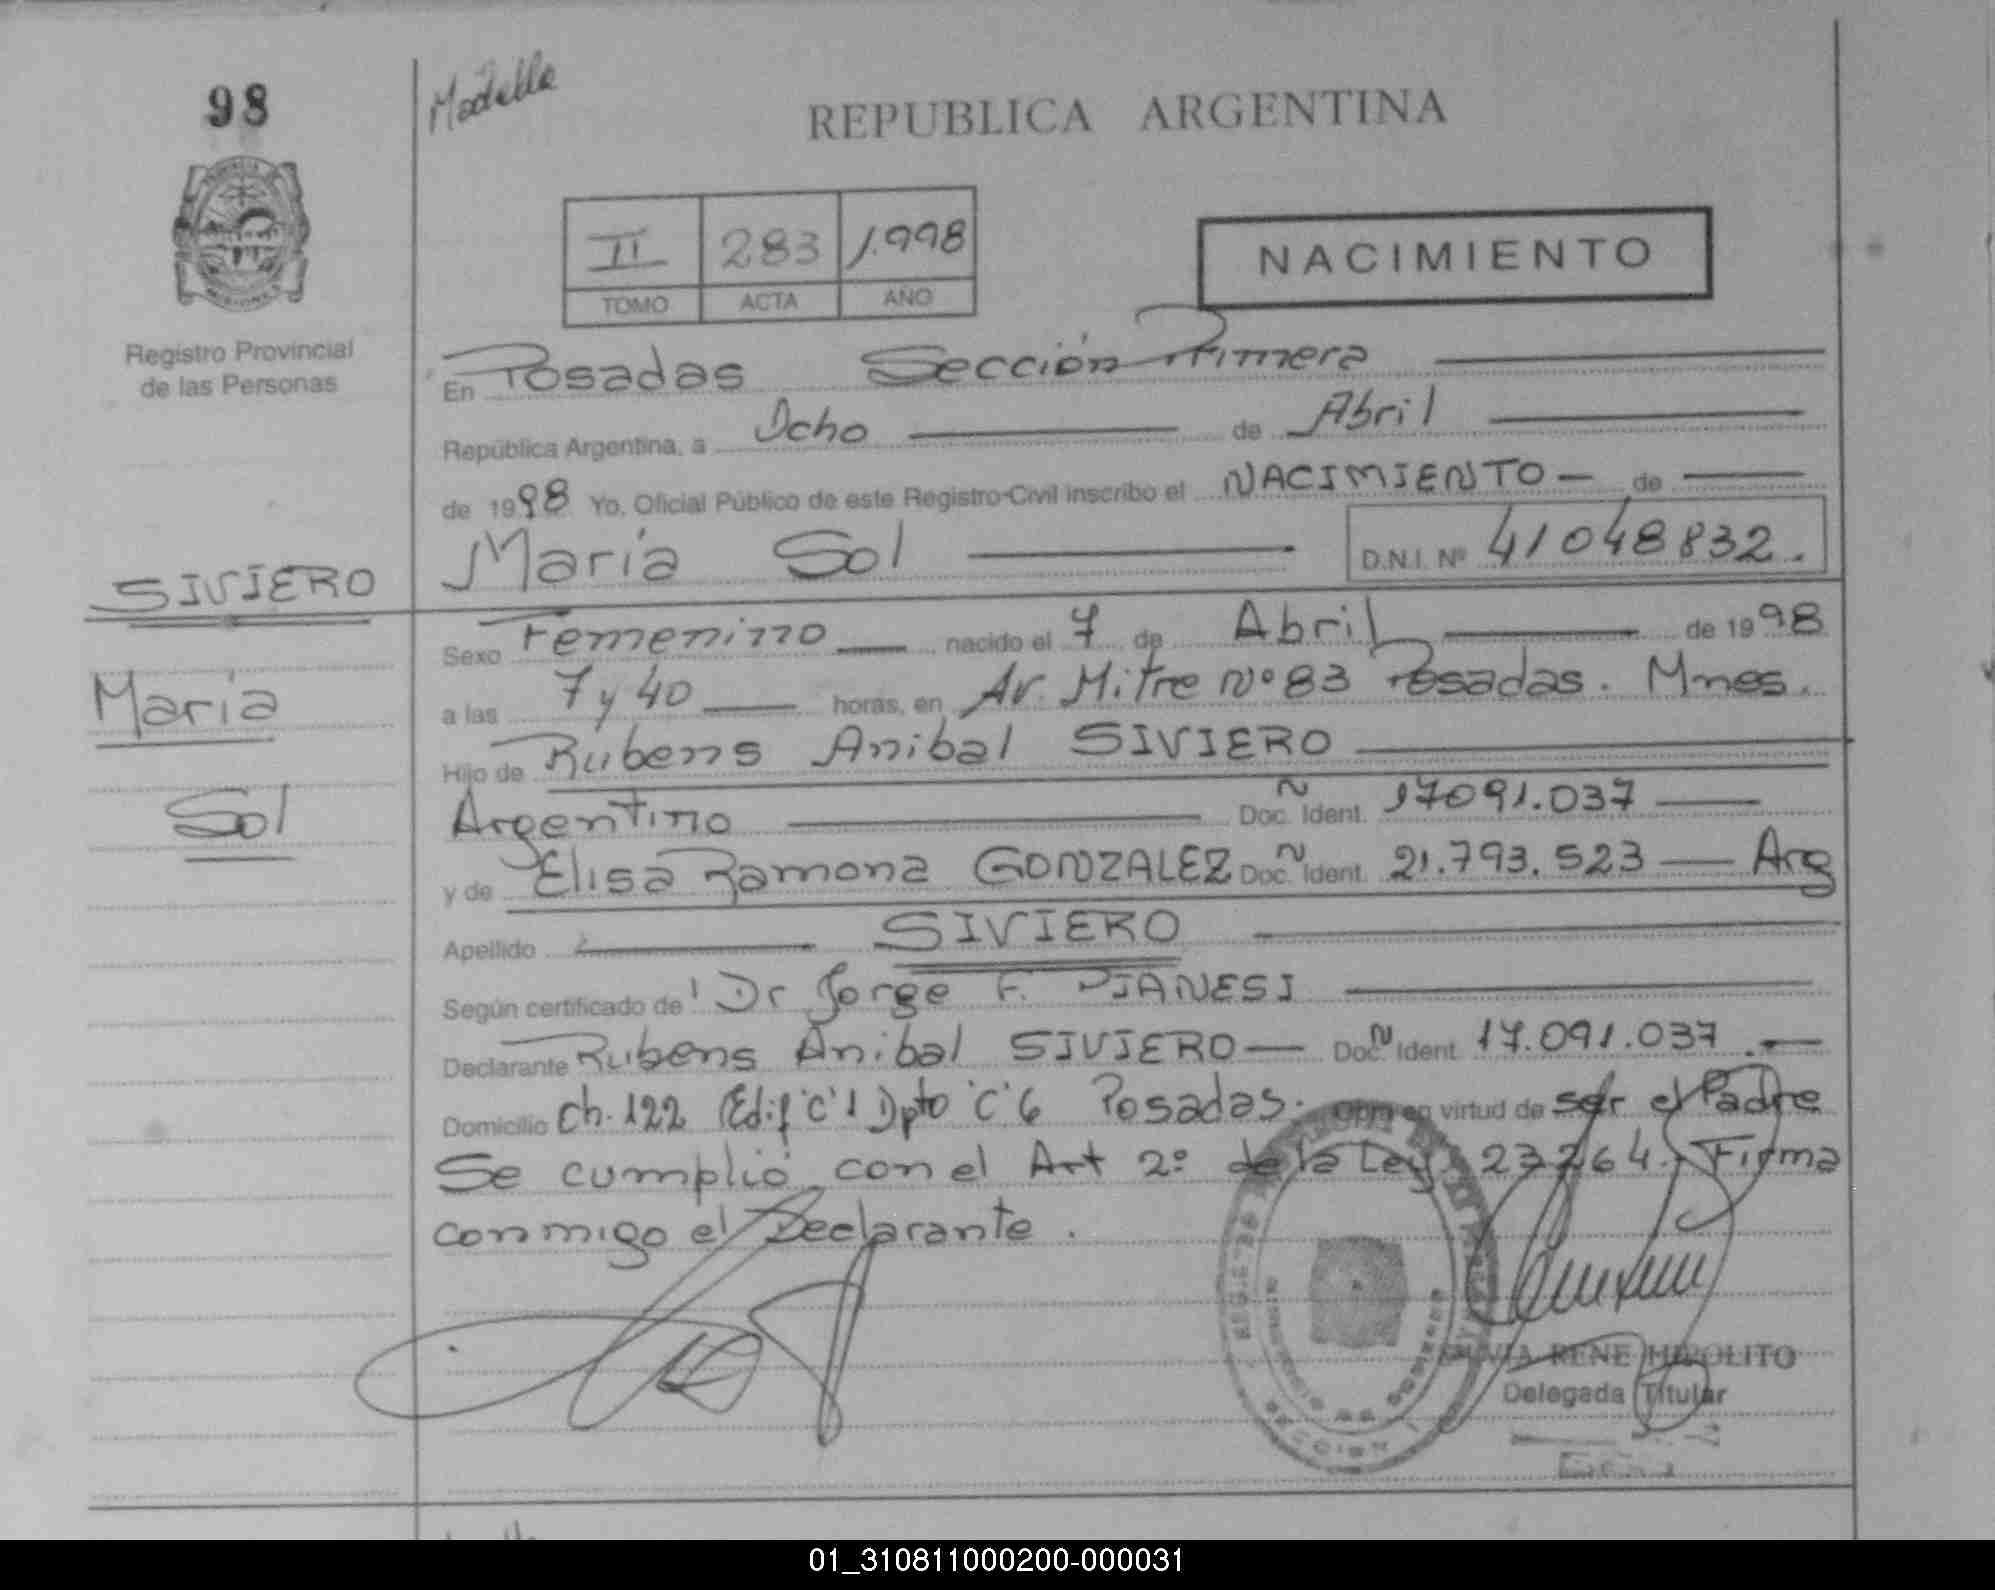 98
Madelle
REPUBLICA ARGENTINA
II 283 1.998
TOMO ACTA AÑO
NACIMIENTO
PROVINCIA
MISIONES
Registro Provincial
de las Personas
En Posadas Sección Primera
República Argentina, a Ocho de Abril
de 1998 Yo, Oficial Público de este Registro Civil inscribo el NACIMIENTO — de
María Sol D.N.I. Nº 41048832.
SIVIERO
María
Sol
Sexo Femenino nacido el 7 de Abril de 1998
a las 7 y 40 horas, en Av. Mitre Nº 83 Posadas. Mnes.
Hijo de Rubens Anibal SIVIERO
Argentino Doc. Ñ Ident. 17091.037
y de Elisa Ramona GONZALEZ Doc. Ñ Ident. 21.793.523 — Arg
Apellido SIVIERO
Según certificado de Dr Jorge F. PIANESI
Declarante Rubens Anibal SIVIERO — Doc. Ñ Ident. 17.091.037.—
Domicilio Ch. 122 Edif "C" 1 Dpto "C" 6 Posadas. Obra en virtud de ser el Padre
Se cumplió con el Art 2º de la Ley 23264. Firma
conmigo el Declarante.
RENE HIPOLITO
Delegada Titular
SECCION
01_310811000200-000031